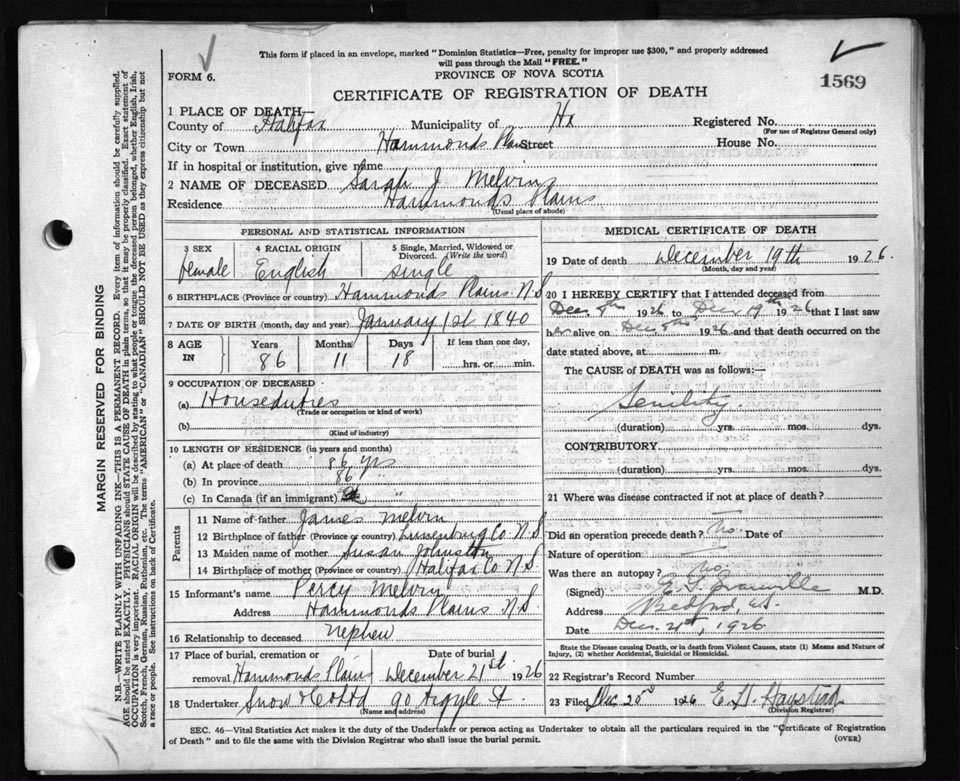 This form if placed in an envelope, marked "Dominion Statistics—Free, penalty for improper use $300," and properly addressed
will pass through the Mail "FREE."
FORM 6.
PROVINCE OF NOVA SCOTIA
CERTIFICATE OF REGISTRATION OF DEATH
1569
1 PLACE OF DEATH—
County of Halifax Municipality of Hx Registered No.
(For use of Registrar General only)
City or Town Hammonds Plains Street House No.
If in hospital or institution, give name
2 NAME OF DECEASED Sarah J Melvin
Residence Hammonds Plains
(Usual place of abode)
PERSONAL AND STATISTICAL INFORMATION
3 SEX 4 RACIAL ORIGIN 5 Single, Married, Widowed or
Divorced. (Write the word)
female English single
6 BIRTHPLACE (Province or country) Hammonds Plains N.S
7 DATE OF BIRTH (month, day and year) January 1st 1840
8 AGE IN Years Months Days If less than one day,
86 11 18 hrs. or min.
9 OCCUPATION OF DECEASED
(a) Houseduties
(Trade or occupation or kind of work)
(b)
(Kind of industry)
10 LENGTH OF RESIDENCE (in years and months)
(a) At place of death 86 yrs
(b) In province 86 "
(c) In Canada (if an immigrant) "
Parents
11 Name of father James Melvin
12 Birthplace of father (Province or country) Lunenburg Co N.S
13 Maiden name of mother Susan Johnston
14 Birthplace of mother (Province or country) Halifax Co N.S.
15 Informant's name Percy Melvin
Address Hammonds Plains N.S.
16 Relationship to deceased nephew
17 Place of burial, cremation or Date of burial
removal Hammonds Plains December 21st 1926
18 Undertaker Snow & Co Ltd 90 Argyle St.
(Name and address)
MEDICAL CERTIFICATE OF DEATH
19 Date of death December 19th 1926.
(Month, day and year)
20 I HEREBY CERTIFY that I attended deceased from
Dec 1926 to Dec 19th 1926 that I last saw
her alive on Dec 1926 and that death occurred on the
date stated above, at m.
The CAUSE of DEATH was as follows:—
Senility
(duration) yrs. mos. dys.
CONTRIBUTORY
(duration) yrs. mos. dys.
21 Where was disease contracted if not at place of death?
Did an operation precede death? No Date of
Nature of operation
Was there an autopsy? No
(Signed) M.D.
Address Bedford, N.S.
Date Dec. 21st, 1926
State the Disease causing Death, or in death from Violent Causes, state (1) Means and Nature of
Injury, (2) whether Accidental, Suicidal or Homicidal.
22 Registrar's Record Number
23 Filed Dec 1926
(Division Registrar)
SEC. 46—Vital Statistics Act makes it the duty of the Undertaker or person acting as Undertaker to obtain all the particulars required in the "Certificate of Registration
of Death" and to file the same with the Division Registrar who shall issue the burial permit.
(OVER)
MARGIN RESERVED FOR BINDING
N.B.—WRITE PLAINLY WITH UNFADING INK—THIS IS A PERMANENT RECORD. Every item of information should be carefully supplied.
AGE should be stated EXACTLY. PHYSICIANS should STATE CAUSE OF DEATH in plain terms, so that it may be properly classified. Exact statement of
OCCUPATION is very important. RACIAL ORIGIN will be described by stating to what people or tongue the deceased person belonged, whether English, Irish,
Scotch, French, German, Russian, Ruthenian, etc. The terms "AMERICAN" or "CANADIAN" SHOULD NOT BE USED as they express citizenship but not
a race or people. See instructions on back of Certificate.